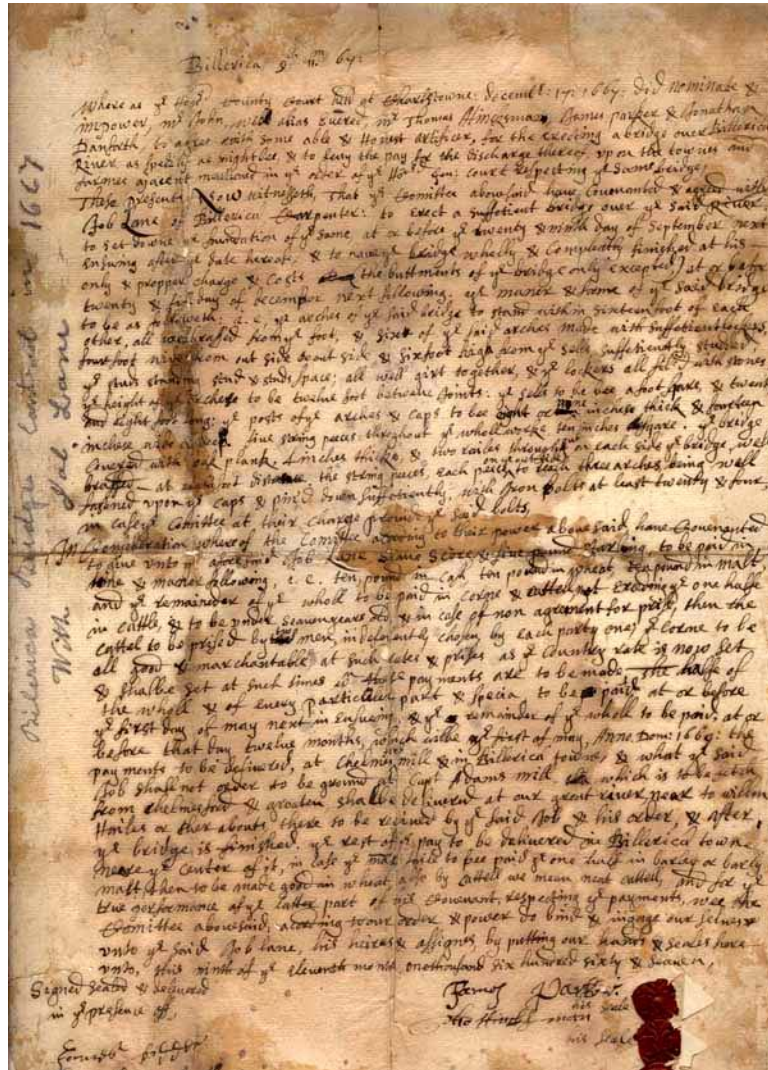 Billerica 9th 11m 67:
Where as ye Honrd County Court held at Charlstowne: decembr: 17: 1667: did nominate &
impower, mr John, Wels alias Evered, mr Thomas Hincsman, James Parker & Jonathan
Danforth, to agree with some able & Honest Artificer, for the erecting a bridge over Billerica
River as speedy as might bee, & to levy the pay for the discharge thereof upon the townes and
farmes ajacent mentioned in ye order of ye Hond Gen: court respecting ye same bridge,
These presents Now witnesseth, That ye Comitee abovesaid have Covenanted & agreed with
Job Lane of Billerica Carpenter: to erect a suffitient bridge over ye said River,
to set downe ye foundation of ye same, at or before ye twenty & ninth day of September next
ensuing after ye date hereof; & to have ye bridge wholly & Compleatly finished at his
only & propper charge & Costs the buttments of ye bridge only excepted) at or before
twenty & day of decembr next following. ye maner & forme of ye said bridge
to be as followeth: i.e. ye arches of ye said bridge to stand within sixteen foot of each
other, all from ye foot, & six of ye said arches made with suffitient lockers,
fourfoot wide from out side to out side & six foot high from ye sells suffitiently studded,
ye studs standing stud & studs space; all well girt together, & ye lockers all fil'd with stones
ye height of ye Arches to be twelve foot betweene Joints: ye sells to be a foot square, & twenty
and eight foot long: ye posts of ye arches & caps to be eight or nine inches thick & fourteen
inches wide five string peeces throughout ye whole worke ten inches square. ye bridge
Covered with oak plank, 4 inches thicke, & two railes throughout on each side ye bridge, well
braced at distance: the string peeces, each peece to reach three arches, being well
fastned upon ye caps & pin'd down suffitiently, with Iron bolts at least twenty & four,
in case ye Comittee at their charge provide ye said bolts,
In Consideration whereof the Comitee according to their power above said, have Covenanted
to give unto ye aforesaid Job Lane score & five pound starling, to be paid in
time & maner following, i.e. ten pound in Cash, ten pound in wheat, ten pound in malt,
and ye remainder of ye wholl to be paid in corne & cattell not exceeding ye one halfe
in cattle, & to be under seaven years old, & in case of non agrement for prise, then the
cattel to be prised by men, indeferently chosen, by each party one; ye Corne to be
all good & marchantable at such rates & prises as ye Country rate is now set
& shalbe set at such times as these payments are to be made, The halfe of
the wholl & of every particuler part & specia to be paid at or before
ye first day of may next in ensueing & ye remainder of ye wholl to be paid, at or
before that day twelve months, which wilbe ye first of may, Anno. Dom: 1669: the
payments to be delivered, at Chelmsford mill & in Billerica towne, & what ye said
Job shall not order to be ground at Capt Adams mill which is to be
from chelmesford & groaten shalbe delivered at our great river near to willm
Hailes or ther abouts, there to be received by ye said Job & his order, & after
ye bridge is finished, ye rest of ye pay to be delivered in Billerica towne
neere ye center of it, in case ye malt faile to bee paid ye one half in barley or barly
malt then to be made good in wheat, also by cattell we mean neat cattell, and for ye
true performance of ye latter part of this Covenant, respecting ye payments, wee the
Comittee abovesaid, acording to our order & power do bind & ingage our selves
unto ye said Job lane, his heires & assignes by putting our hands & seales here
unto, this ninth of ye eleventh month onethousand six hundred sixty & seaven,
Signed sealed & delivered
in ye presence off,
James Parker.
his seale
his seale
Billerica Bridge Contract in 1667
With Job Lane